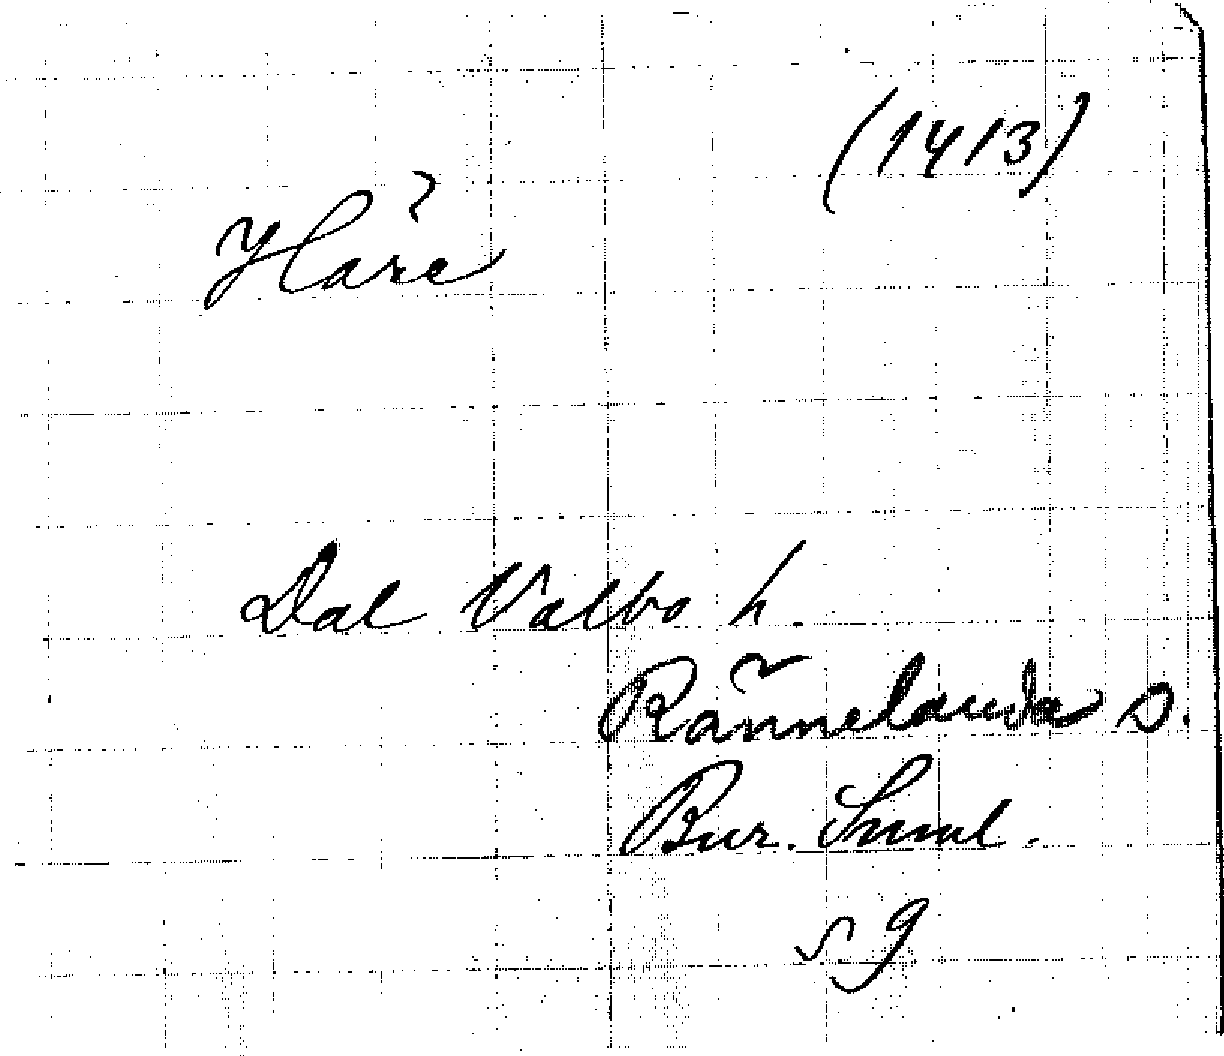 (1413)
Håre
Dal Valbo h.
Rännelanda s.
Bur. Suml.
s 9